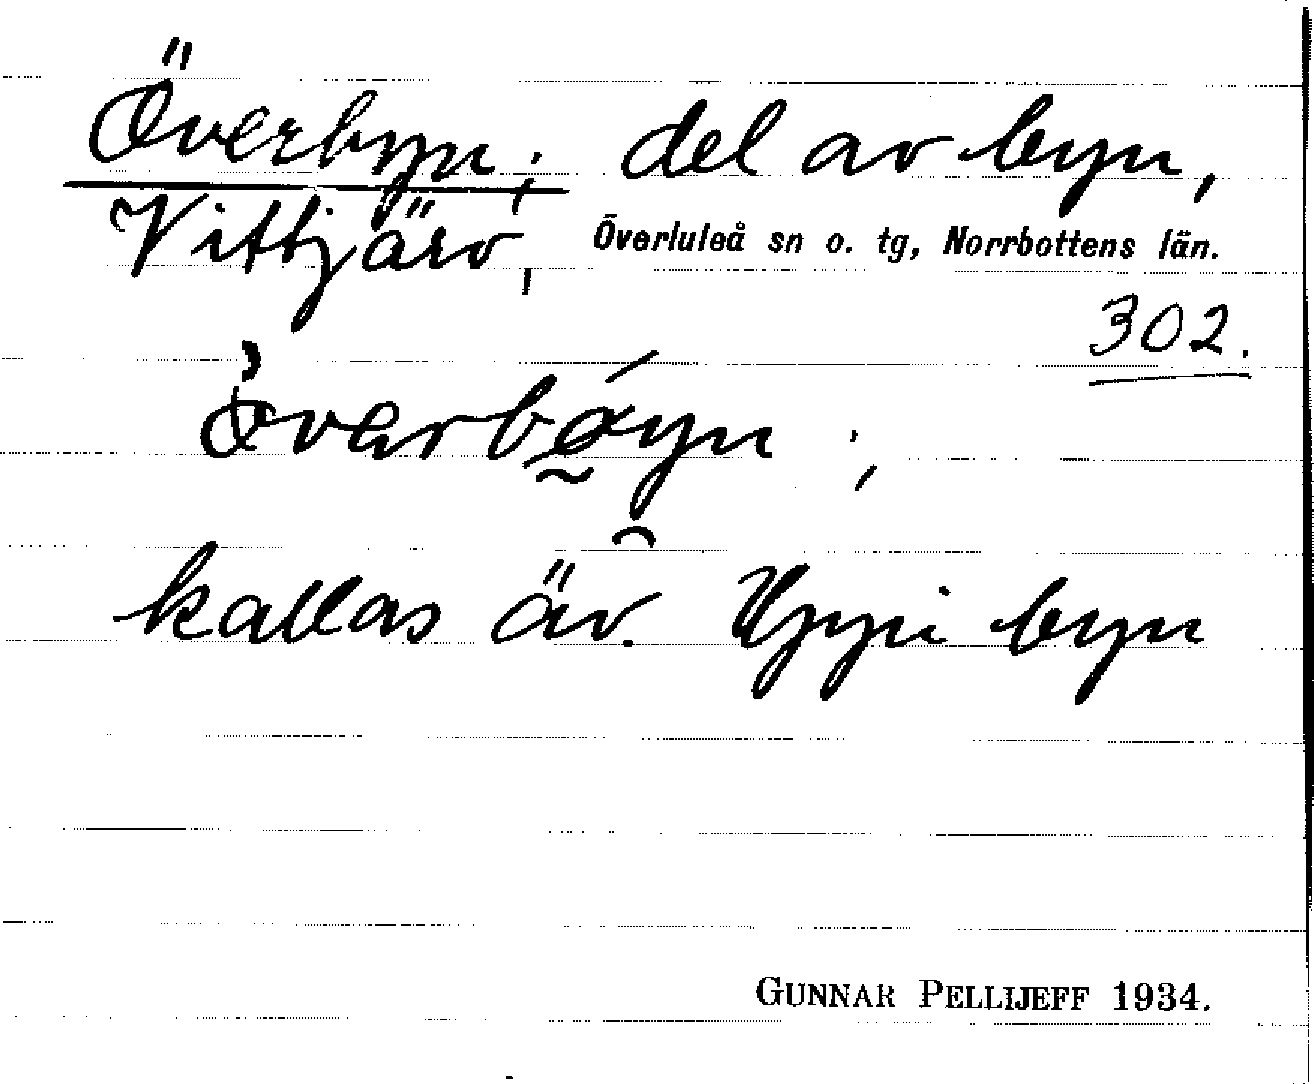 Överbyn; del av byn,
Vittjärv, Överluleå sn o. tg, Norrbottens län.
302.
kallas äv. Uppi byn
GUNNAR PELLIJEFF 1934.